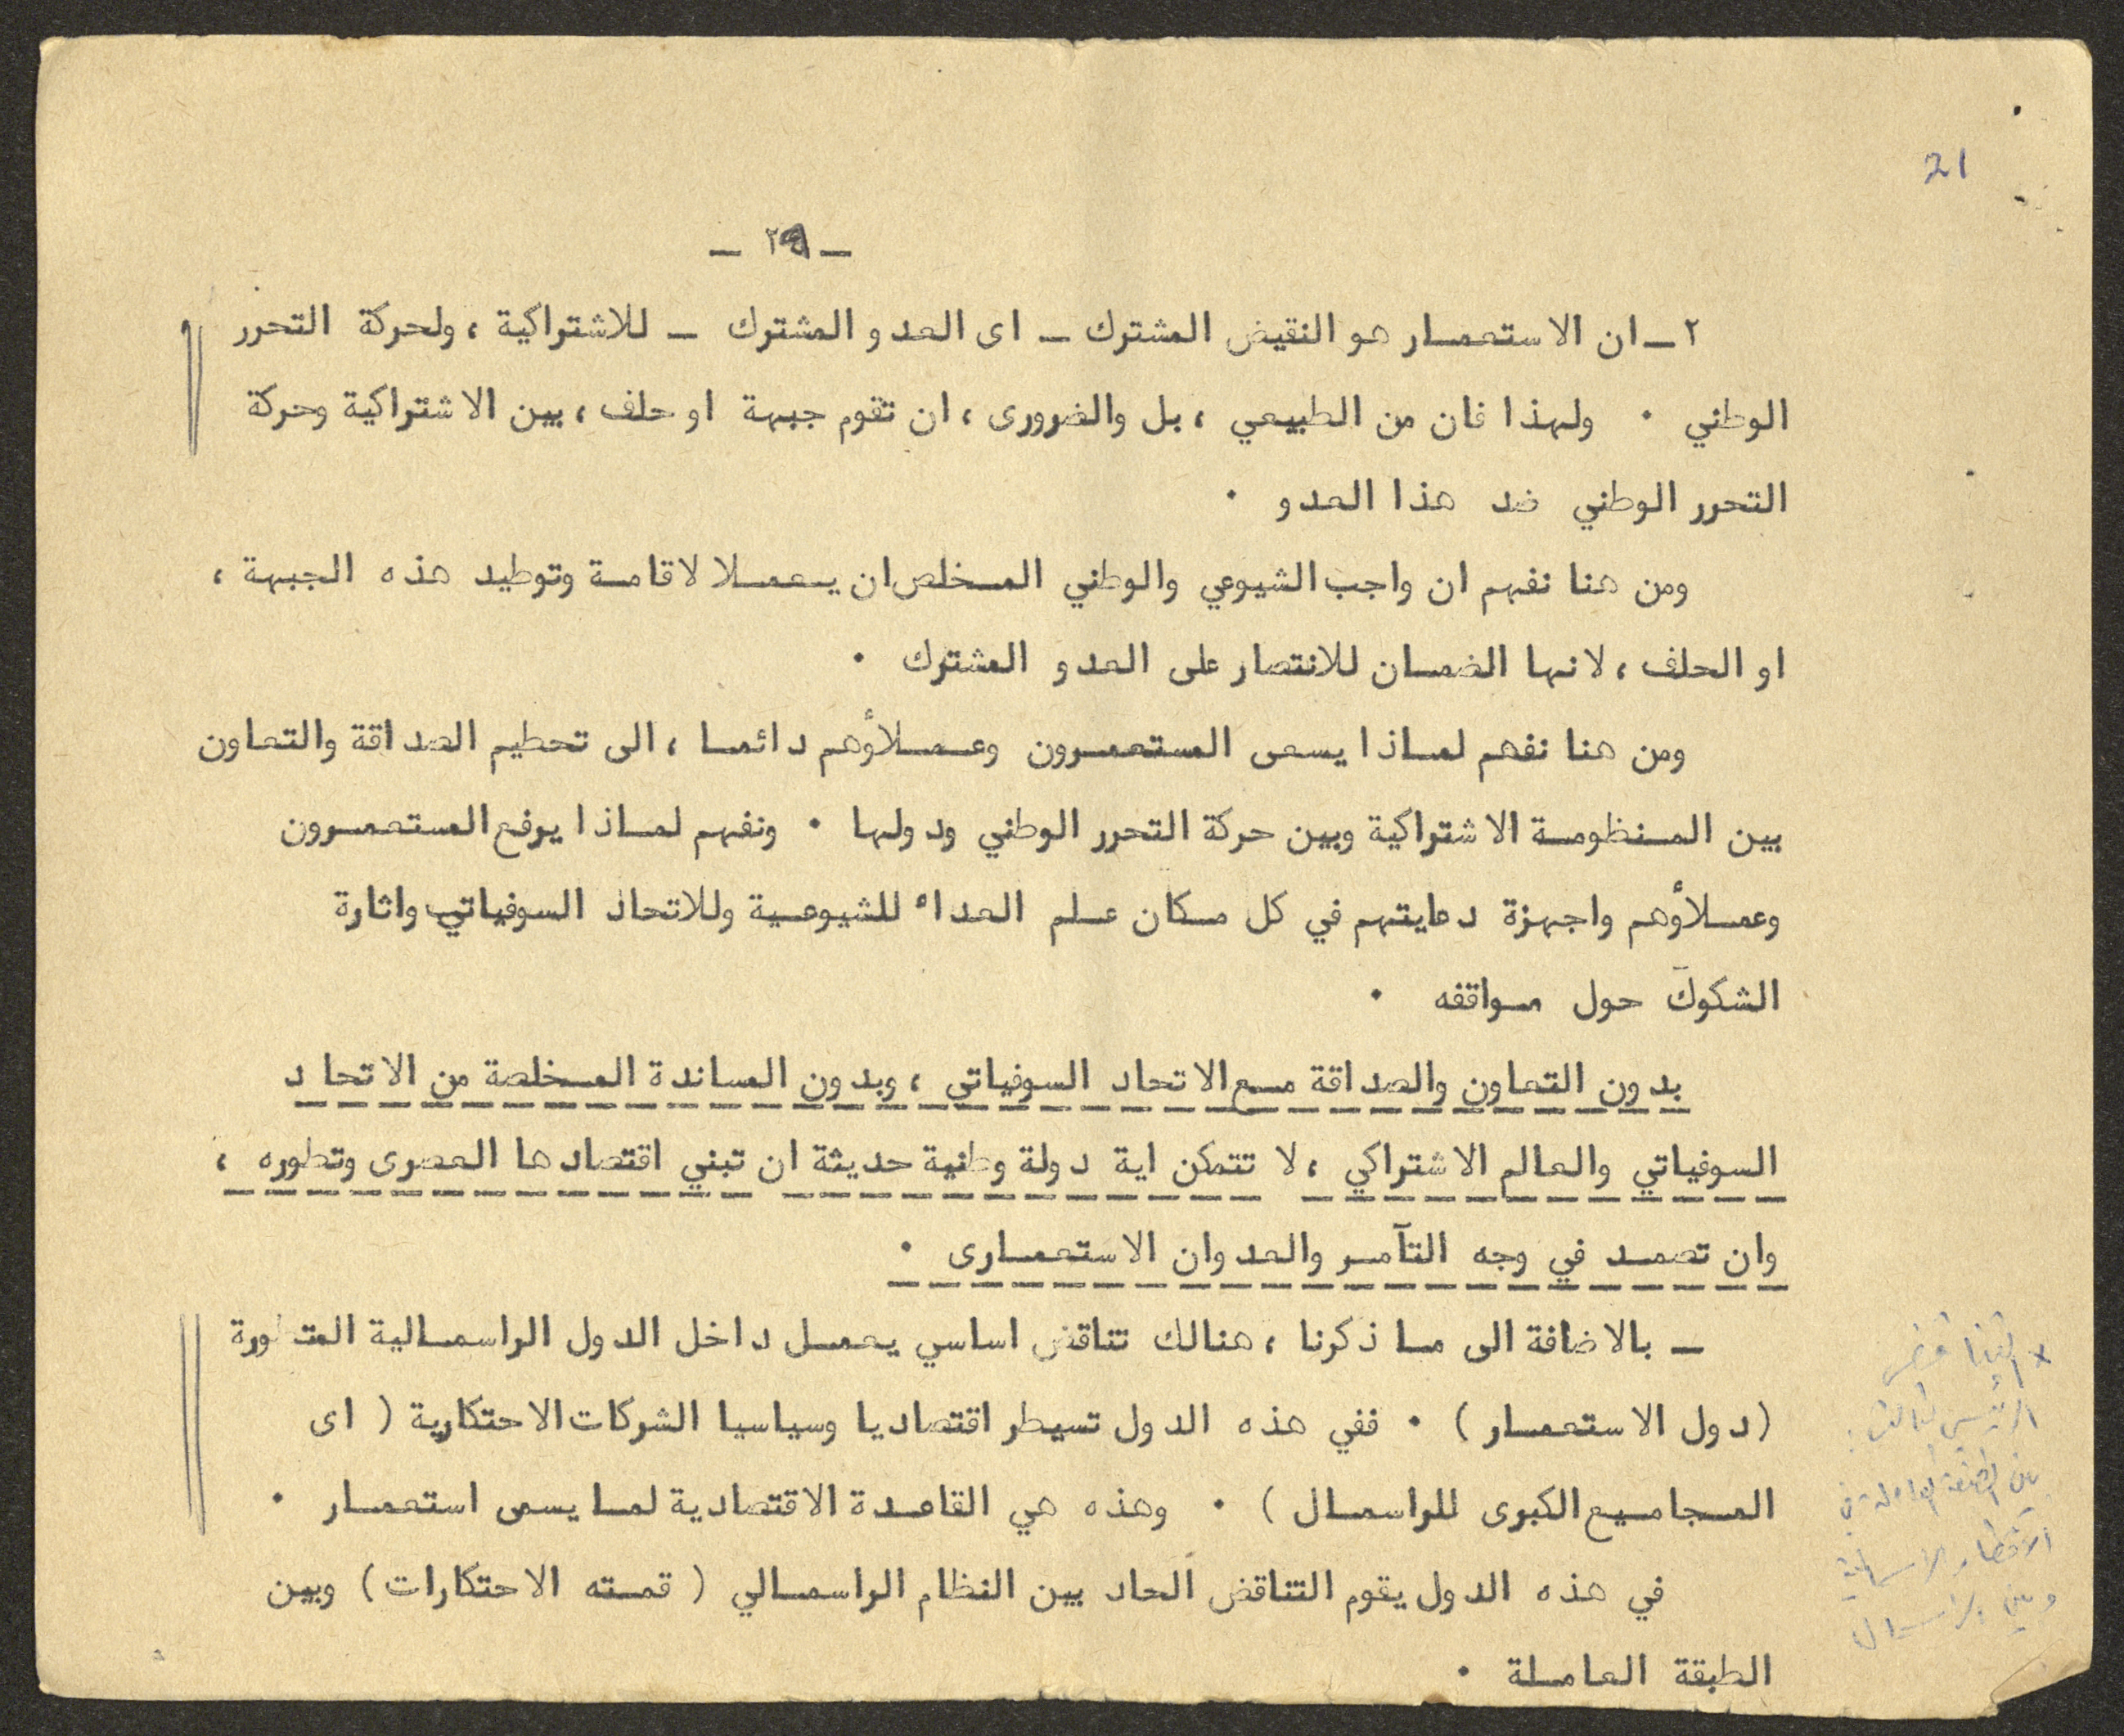 21
– ٢٩ –
٢ – ان الاستعمار هو النقيض المشترك – اى العدو المشترك – للاشتراكية ، ولحركة التحرر
الوطني . ولهذا فان من الطبيعي ، بل والضرورى ، ان تقوم جبهة او حلف ، بين الاشتراكية وحركة
التحرر الوطني ضد هذا العدو .
ومن هنا نفهم ان واجب الشيوعي والوطني المخلص ان يعملا لاقامة وتوطيد هذه الجبهة ،
او الحلف ، لانها الضمان للانتصار على العدو المشترك .
ومن هنا نفهم لماذا يسعى المستعمرون وعملاؤهم دائما ، الى تحطيم الصداقة والتعاون
بين المنظومة الاشتراكية وبين حركة التحرر الوطني ودولها . ونفهم لماذا يرفع المستعمرون
وعملاؤهم واجهزة دعايتهم في كل مكان علم العداء للشيوعية وللاتحاد السوفياتي واثارة
الشكوك حول مواقفه .
بدون التعاون والصداقة مع الاتحاد السوفياتي ، وبدون المساندة المخلصة من الاتحاد
السوفياتي والعالم الاشتراكي ، لا تتمكن اية دولة وطنية حديثة ان تبني اقتصادها العصرى وتطوره ،
وان تصمد في وجه التآمر والعدوان الاستعمارى .
– بالاضافة الى ما ذكرنا ، هنالك تناقض اساسي يعمل داخل الدول الراسمالية المتطورة
(دول الاستعمار) . ففي هذه الدول تسيطر اقتصاديا وسياسيا الشركات الاحتكارية ( اى
المجاميع الكبرى للراسمال ) . وهذه هي القاعدة الاقتصادية لما يسمى استعمار .
في هذه الدول يقوم التناقض الحاد بين النظام الراسمالي ( قمته الاحتكارات ) وبين
الطبقة العاملة .
بين الطبقة العاملة في
الاقطار الراسمالية
وبين الراسمال